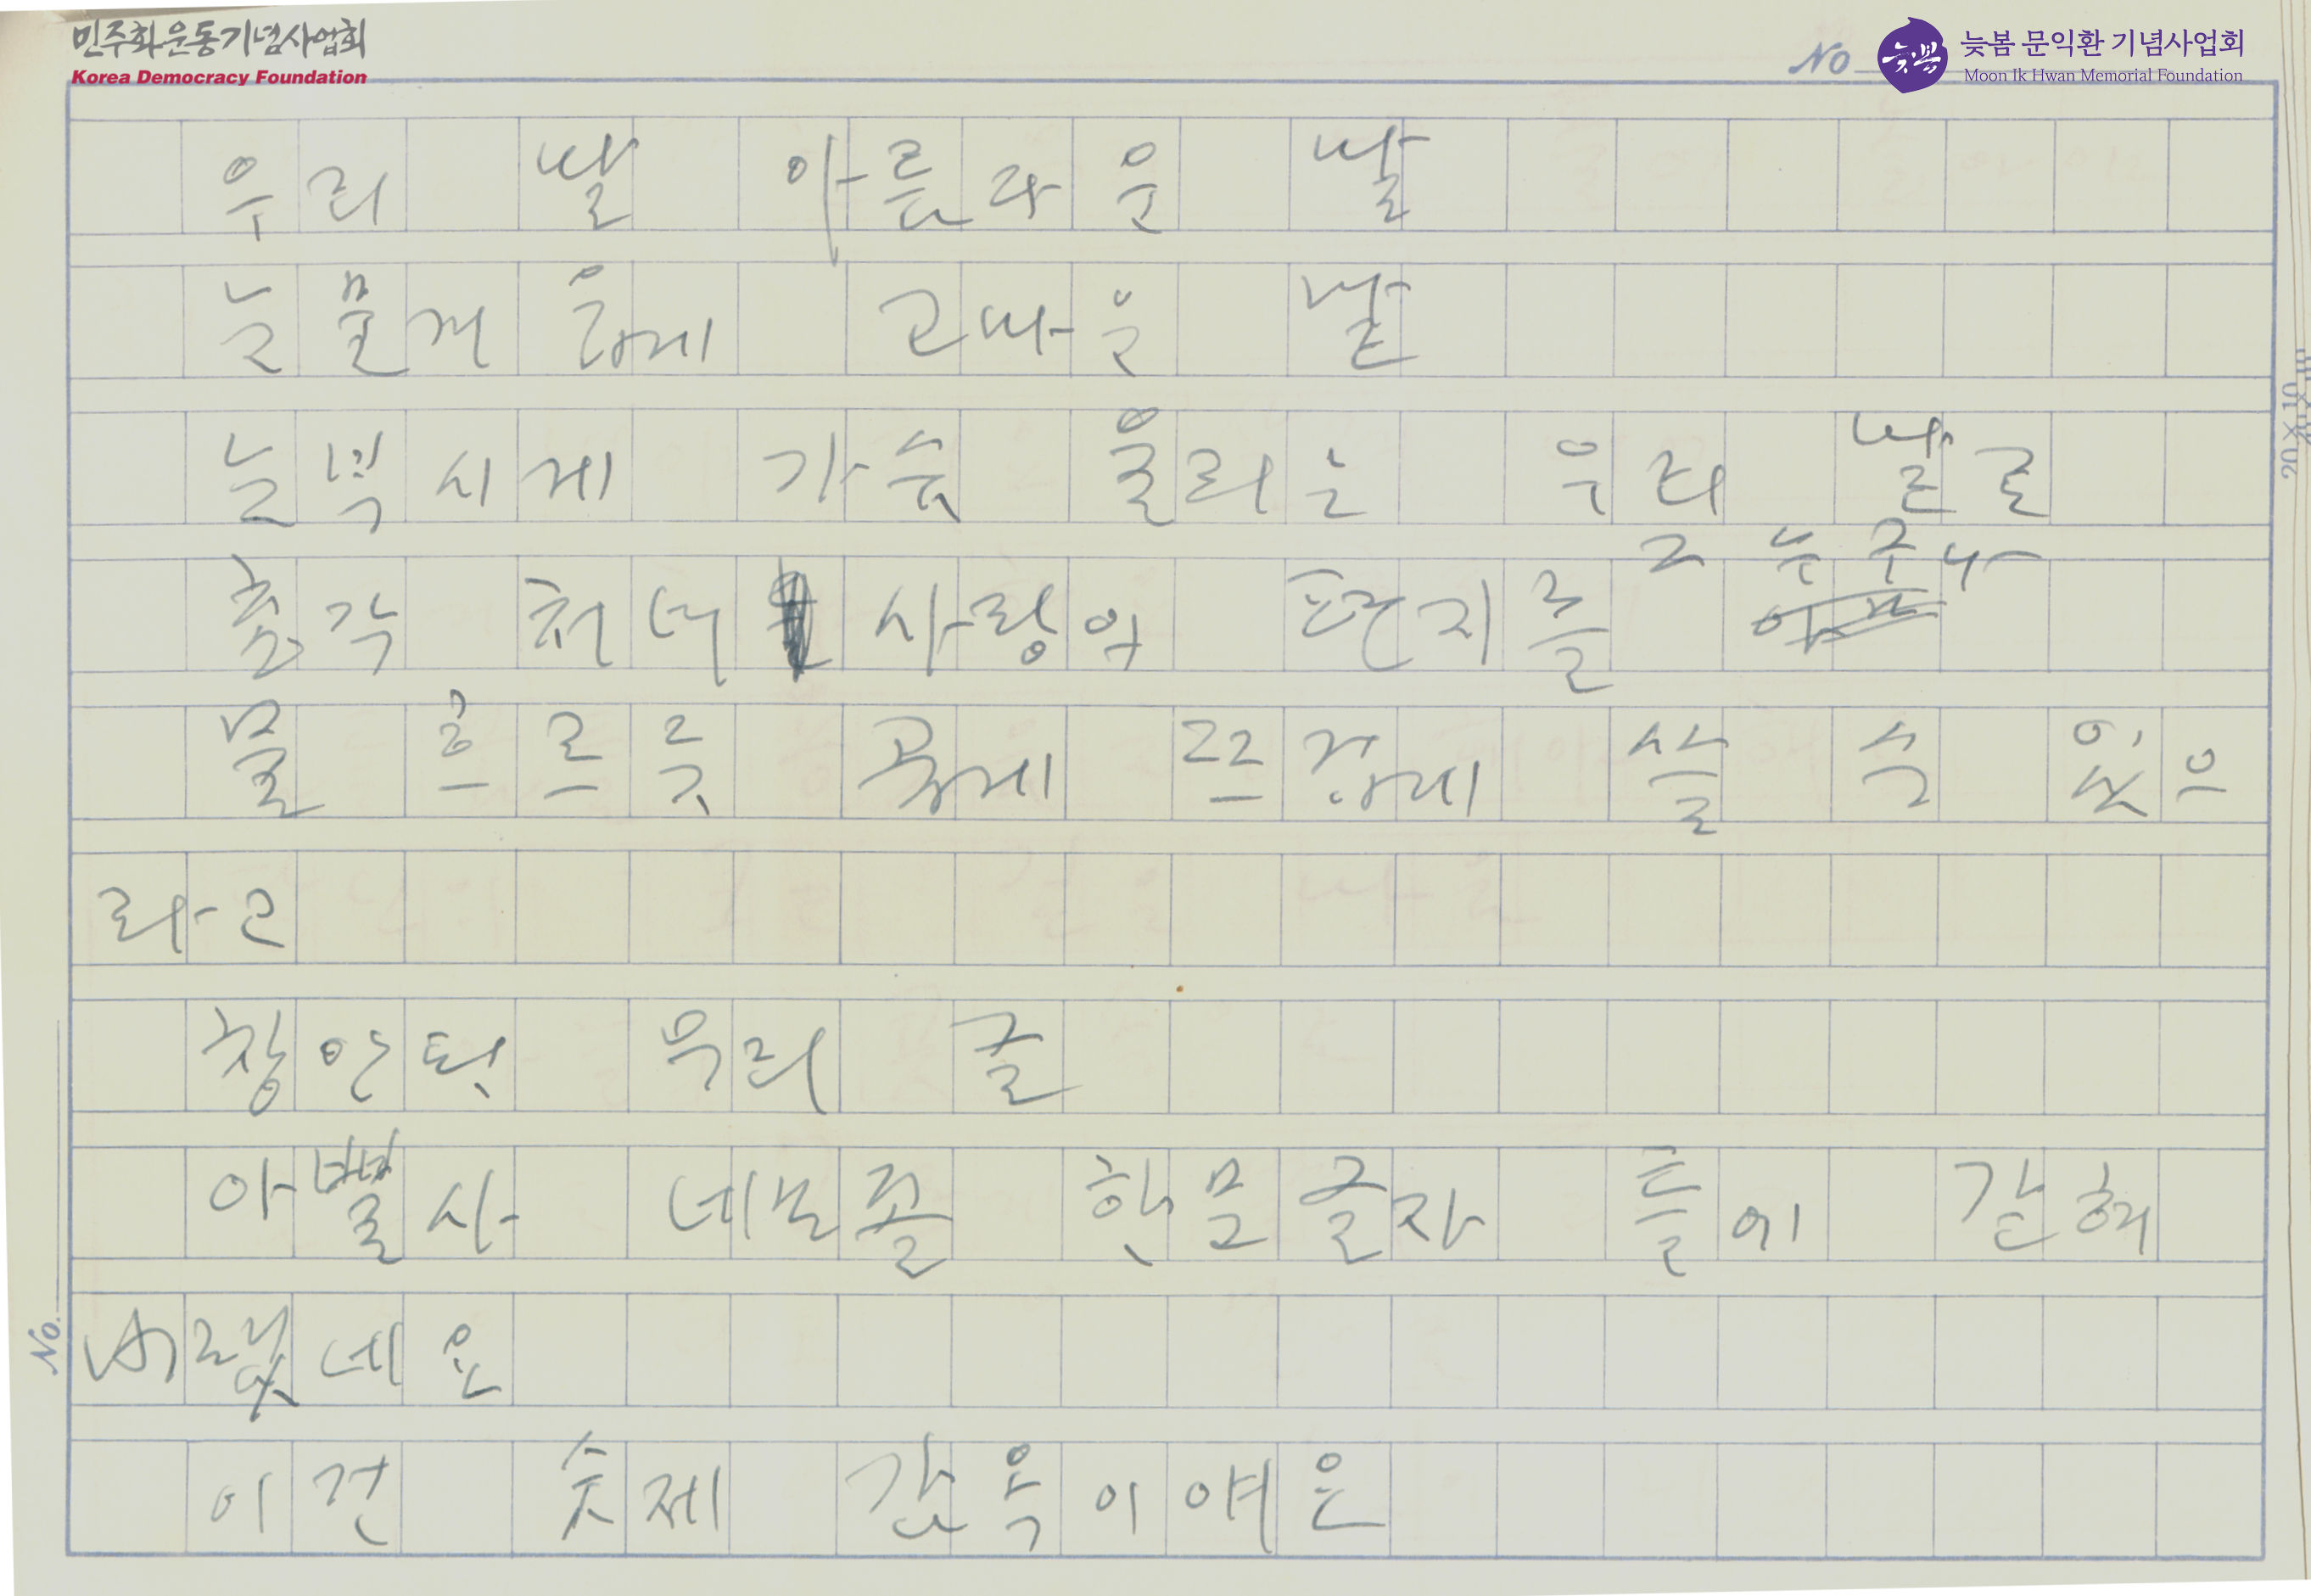 민주화운동기념사업회
Korea Democracy Foundation
No
늦봄
늦봄 문익환 기념사업회
Moon Ik Hwan Memorial Foundation
우리 말 아름다운 말
눈물겨웁게 고마운 말
눈부시게 가슴 울리는 우리 말로
총각 처녀 사랑의 편지를 그 누구나
물 흐르듯 곱게 뜨겁게 쓸 수 있으
라고
창안된 우리 글
아뿔사 네모꼴 한문글자 틀에 갇혀
버렸네요
이건 숫제 감옥이예요
No.
20×10